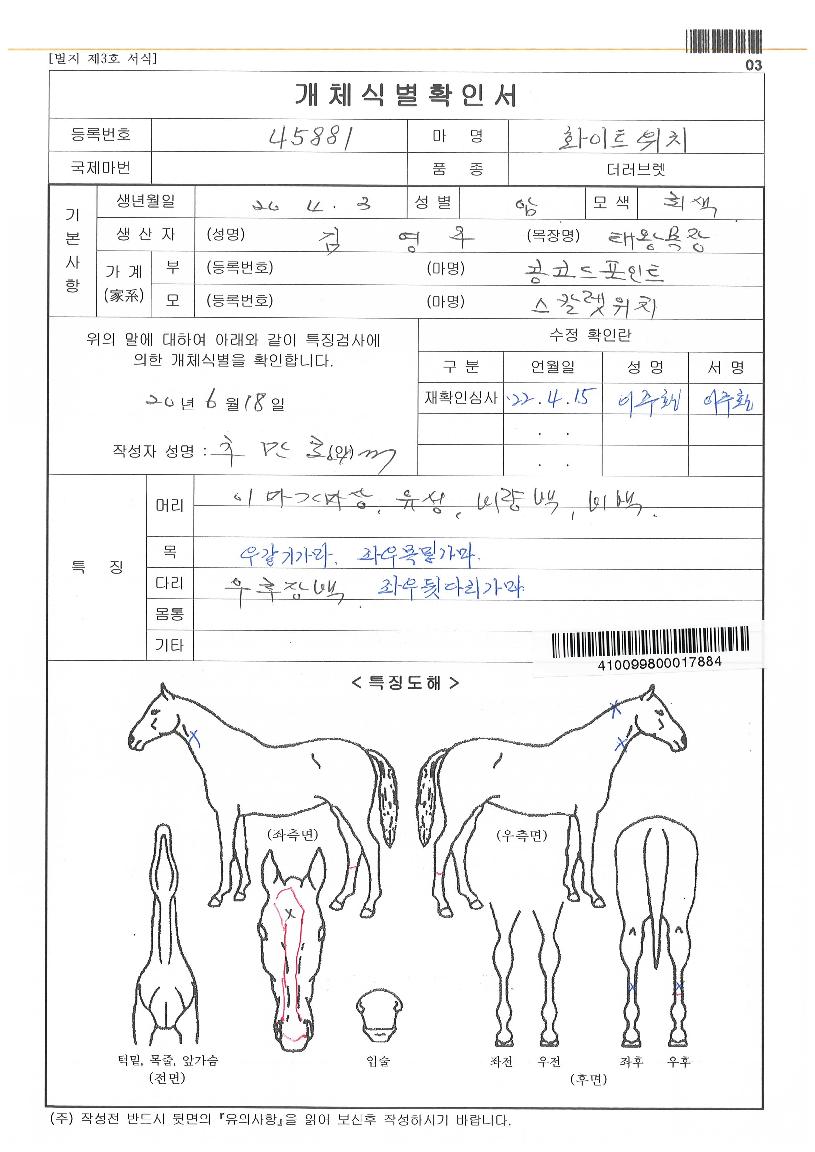 [별지 제3호 서식]
03
개체식별확인서
등록번호 45881 마 명 화이트위치
국제마번 품 종 더러브렛
기본사항
생년월일 20 4. 3 성별 암 모색 회색
생 산 자 (성명) 김 영 우 (목장명) 태왕목장
가 계 (家系) 부 (등록번호) (마명) 콩코드포인트
모 (등록번호) (마명) 스칼렛위치
위의 말에 대하여 아래와 같이 특징검사에
의한 개체식별을 확인합니다.
20년 6월 18일
작성자 성명 : (인)
수정 확인란
구 분 언월일 성 명 서 명
재확인심사 '22. 4. 15 이주환 이주환
. .
. .
특 징
머리 이마가마장, 유성, 비량백, 비백.
목 우갈기가마, 좌우목밑가마.
다리 우후장백 좌우뒷다리가마
몸통
기타
410099800017884
< 특징도해 >
(좌측면) (우측면)
턱밑, 목줄, 앞가슴 입술 좌전 우전 좌후 우후
(전면) (후면)
(주) 작성전 반드시 뒷면의 『유의사항』을 읽어 보신후 작성하시기 바랍니다.